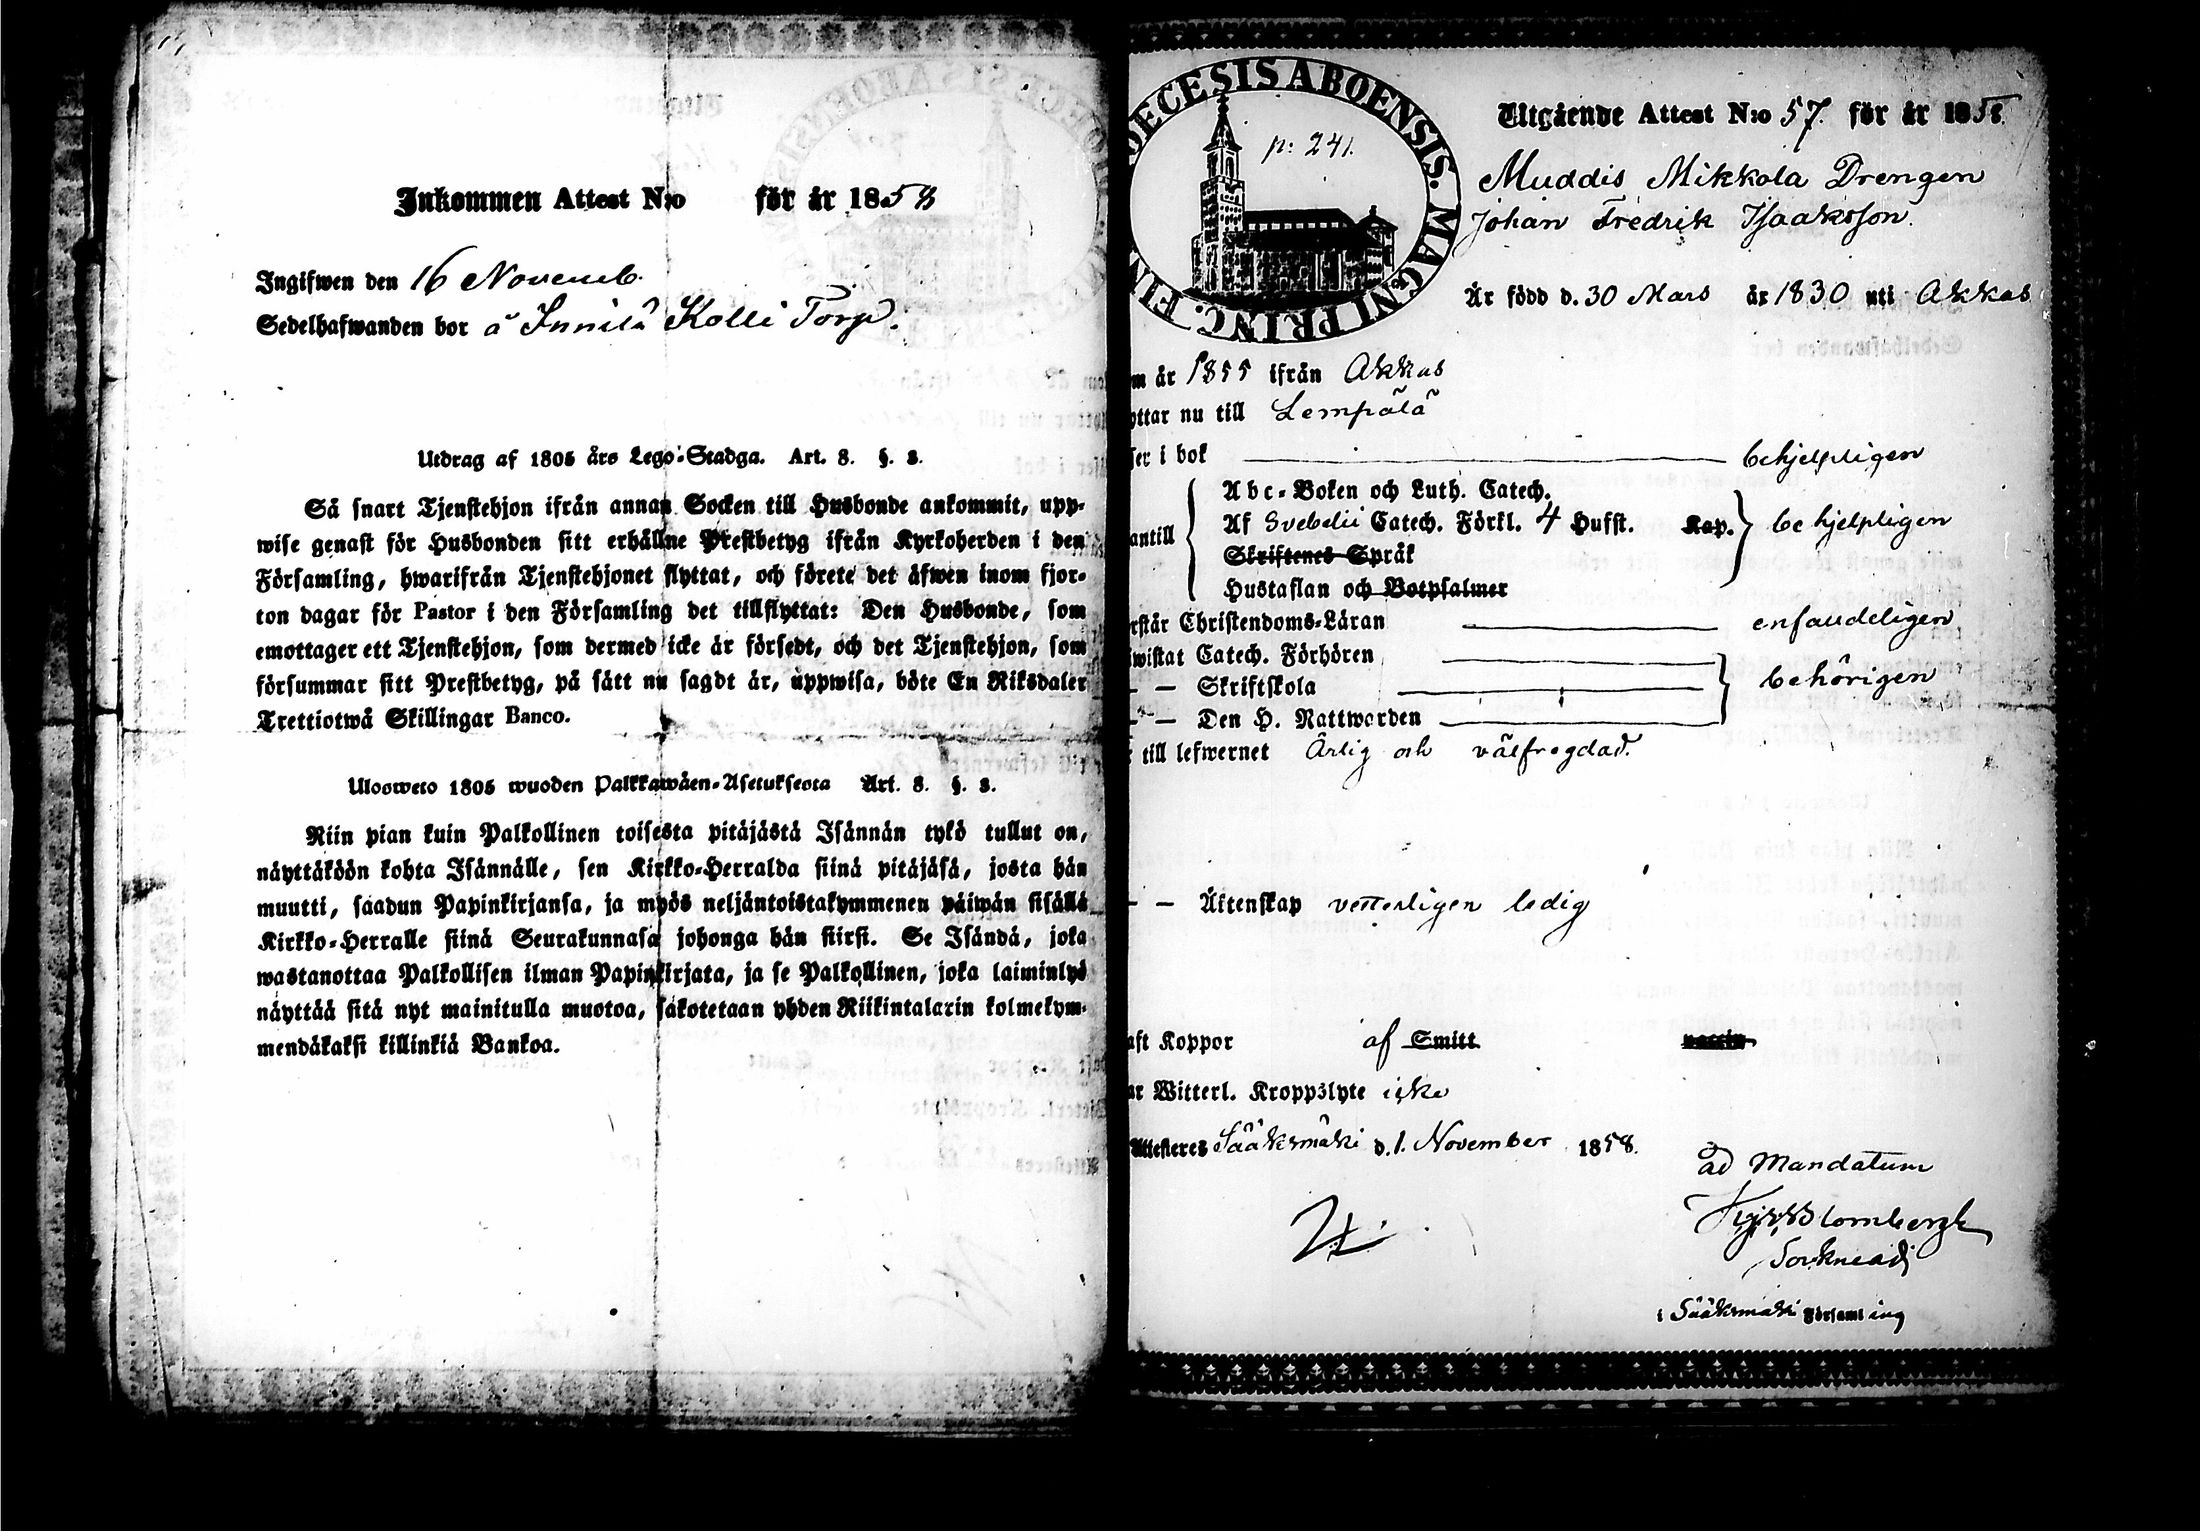 Inkommen Attest N:o för år 1858
Ingifwen den 16 Novemb.
Sedelhafwanden bor å Innilä Kolli Torp.
Utdrag af 1805 års Lego-Stadga. Art. 8. §. 3.
Så snart Tjenstehjon ifrån annan Socken till Husbonde ankommit, upp-
wise genast för Husbonden sitt erhållne Prestbetyg ifrån Kyrkoherden i den
Församling, hwarifrån Tjenstehjonet flyttat, och förete det äfwen inom fjor-
ton dagar för Pastor i den Församling det tillflyttat: Den Husbonde, som
emottager ett Tjenstehjon, som dermed icke är försedt, och det Tjenstehjon, som
försummar sitt Prestbetyg, på sätt nu sagdt är, uppwisa, böte En Riksdaler
Trettiotwå Skillingar Banco.
Ulosweto 1805 wuoden Palkkawäen-Asetuksesta Art. 8. §. 3.
Niin pian kuin Palkollinen toisesta pitäjästä Isännän tykö tullut on,
näyttäköön kohta Isännälle, sen Kirkko-Herralda siinä pitäjäsä, josta hän
muutti, saadun Papinkirjansa, ja myös neljäntoistakymmenen päiwän sisällä
Kirkko-Herralle siinä Seurakunnasa johonga hän siirsi. Se Isändä, joka
wastanottaa Palkollisen ilman Papinkirjata, ja se Palkollinen, joka laiminlyö
näyttää sitä nyt mainitulla muotoa, sakotetaan yhden Riikintalarin kolmekym-
mendäkaksi killinkiä Bankoa.
DECESIS ABOENSIS. MAGNI PRINC. FIN
p: 241.
Utgående Attest N:o 57. för år 185
Muddis Mikkola Drengen
Johan Fredrik Isaaksson.
Är född d. 30 Mars år 1830 uti Akkas
m år 1855 ifrån Akkas
yttar nu till Lempälä
ser i bok behjelpligen
Abc-Boken och Luth. Catech.
antill Af Svebelii Catech. Förkl. 4 Hufst. Kap. behjelpligen
Skriftenes Språk
Hustaflan och Botpsalmer
rstår Christendoms-Läran enfaudeligen
iwistat Catech. Förhören
— — Skriftskola behörigen
— — Den H. Nattwarden
till lefwernet Ärlig och välfregdad.
— — Äktenskap vetterligen ledig
aft Koppor af Smitt
ar Witterl. Kroppslyte icke
Attesteres Sääksmäki d. 1. November 1858.
ad Mandatum
Blombergh
i Sääksmäki Församling